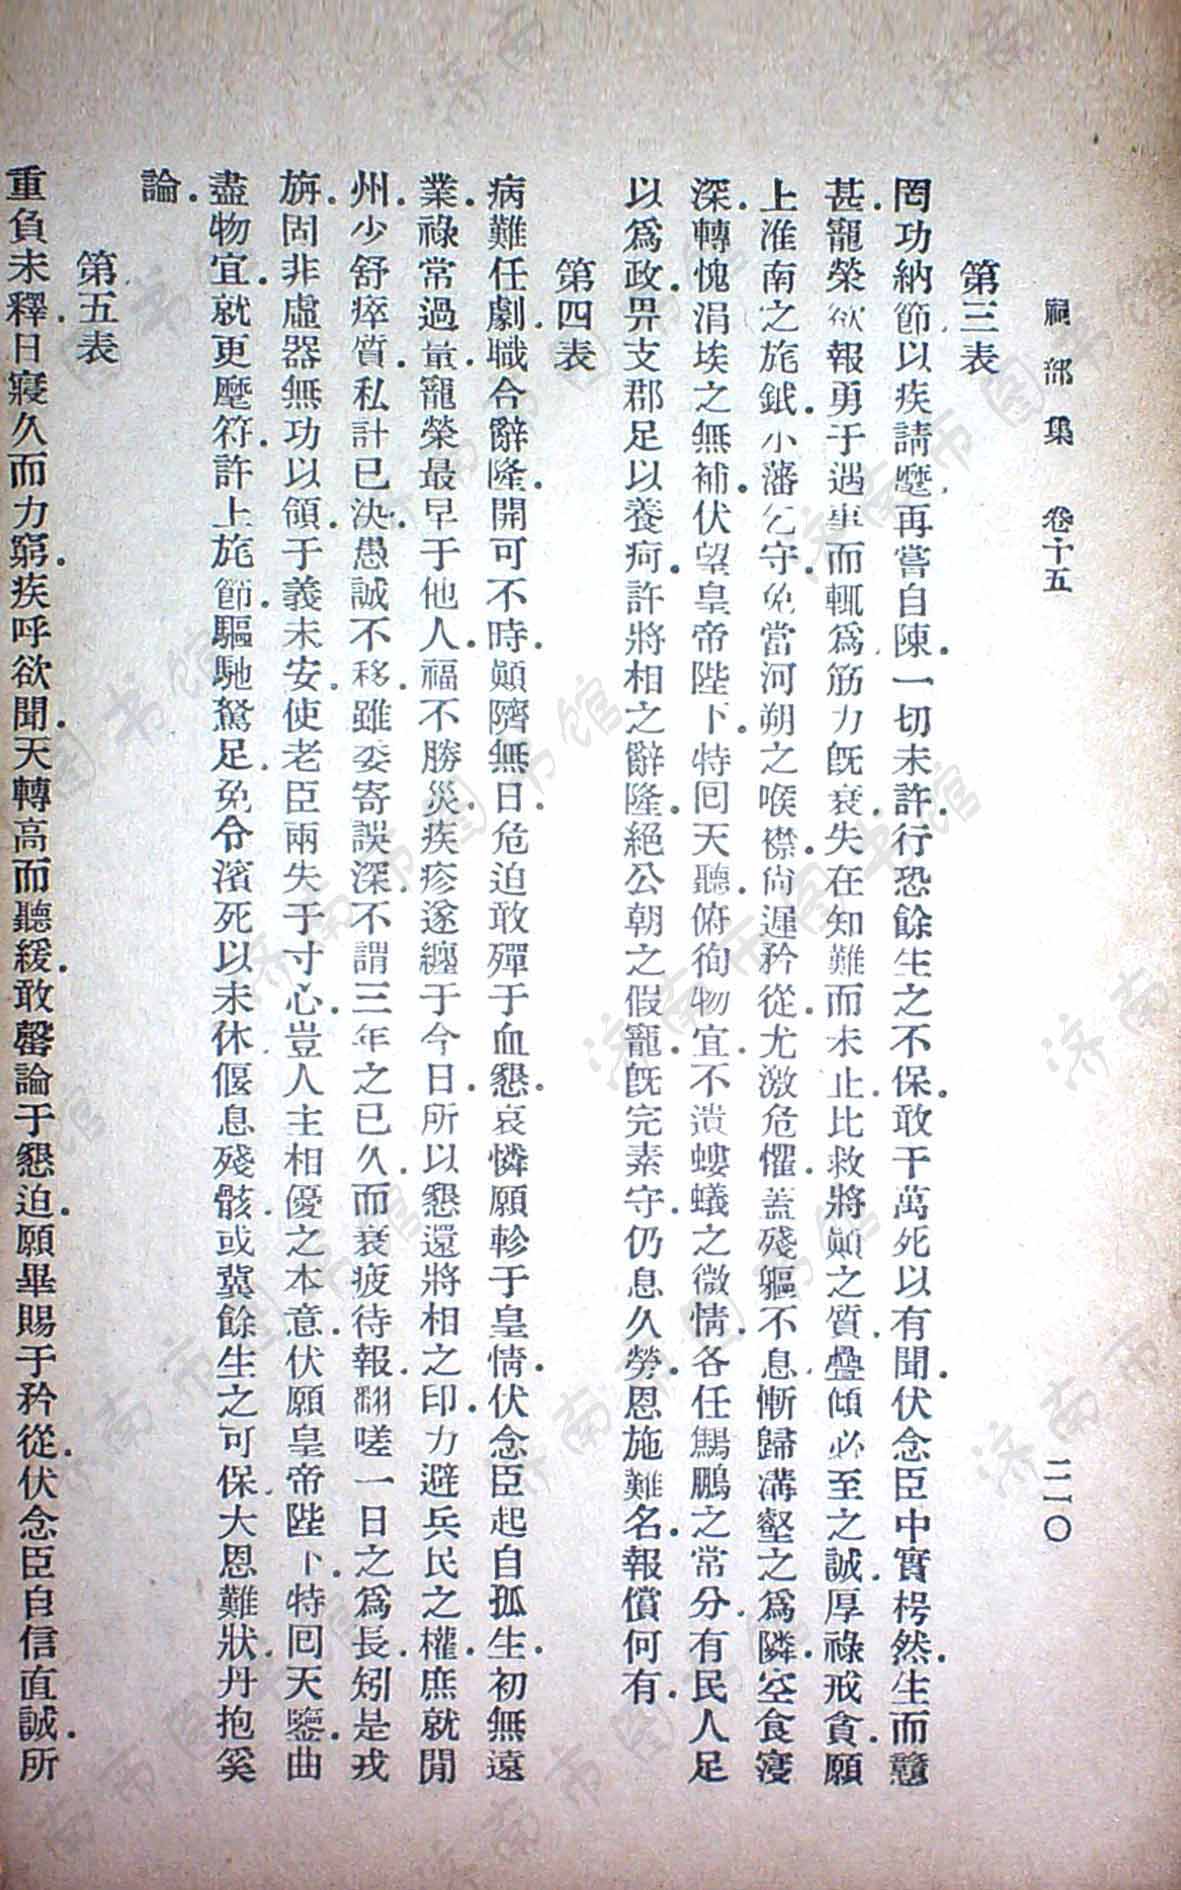 祠部集 卷十五 二一〇
第三表
罔功納節.以疾請麾.再嘗自陳.一切未許.行恐餘生之不保.敢干萬死以有聞.伏念臣中實枵然.生而戆
甚.寵榮欲報.勇于遇事而輒爲.筋力旣衰.失在知難而未止.比救將顚之質.疊傾必至之誠.厚祿戒貪.願
上淮南之旄鉞.小藩乞守.免當河朔之喉襟.尙遲矜從.尤激危懼.蓋殘軀不息.慚歸溝壑之爲隣.空食寖
深.轉愧涓埃之無補.伏望皇帝陛下.特回天聽.俯徇物宜.不潰螻蟻之微情.各任鷃鵬之常分.有民人足
以爲政.畀支郡足以養疴.許將相之辭隆.絕公朝之假寵.旣完素守.仍息久勞.恩施難名.報償何有.
第四表
病難任劇.職合辭隆.開可不時.顚隮無日.危迫敢殫于血懇.哀憐願軫于皇情.伏念臣起自孤生.初無遠
業.祿常過量.寵榮最早于他人.福不勝災.疾疹遂纏于今日.所以懇還將相之印.力避兵民之權.庶就閒
州.少舒瘁質.私計已決.愚誠不移.雖委寄誤深.不謂三年之已久.而衰疲待報.翻嗟一日之爲長.矧是戎
旃.固非虛器.無功以領.于義未安.使老臣兩失于寸心.豈人主相優之本意.伏願皇帝陛下.特回天鑒.曲
盡物宜.就更麾符.許上旄節.驅馳駑足.免令濱死以未休.偃息殘骸.或冀餘生之可保.大恩難狀.丹抱奚
論.
第五表
重負未釋.日寖久而力窮.疾呼欲聞.天轉高而聽緩.敢罄論于懇迫.願畢賜于矜從.伏念臣自信直誠.所